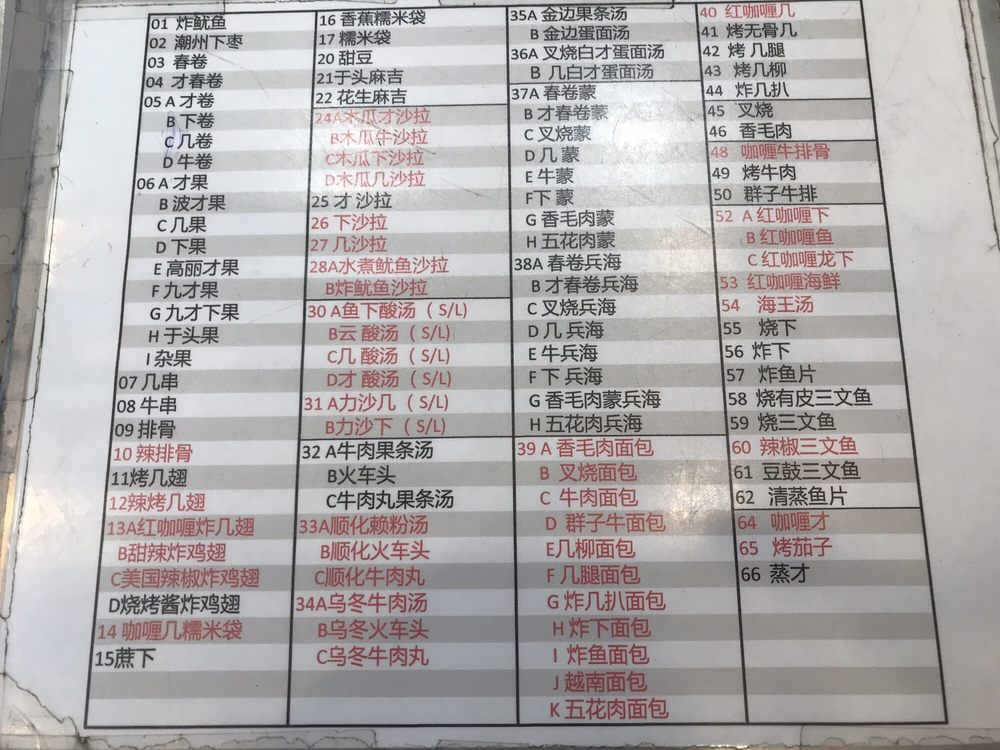 01 炸鱿鱼
02 潮州下枣
03 春卷
04 才春卷
05 A 才卷
B 下卷
C 几卷
D 牛卷
06 A 才果
B 波才果
C 几果
D 下果
E 高丽才果
F 九才果
G 九才下果
H 于头果
I 杂果
07 几串
08 牛串
09 排骨
10 辣排骨
11烤几翅
12辣烤几翅
13A红咖喱炸几翅
B甜辣炸鸡翅
C美国辣椒炸鸡翅
D烧烤酱炸鸡翅
14 咖喱几糯米袋
15蔗下
16 香蕉糯米袋
17 糯米袋
20 甜豆
21于头麻吉
22 花生麻吉
24A木瓜才沙拉
B木瓜牛沙拉
C木瓜下沙拉
D木瓜几沙拉
25 才 沙拉
26 下沙拉
27 几沙拉
28A水煮鱿鱼沙拉
B炸鱿鱼沙拉
30 A鱼下酸汤（S/L)
B云 酸汤（S/L)
C几 酸汤（S/L)
D才 酸汤（S/L)
31 A力沙几（S/L)
B力沙下（S/L)
32 A牛肉果条汤
B火车头
C牛肉丸果条汤
33A顺化赖粉汤
B顺化火车头
C顺化牛肉丸
34A乌冬牛肉汤
B乌冬火车头
C乌冬牛肉丸
35A 金边果条汤
B 金边蛋面汤
36A 叉烧白才蛋面汤
B 几白才蛋面汤
37A 春卷蒙
B 才春卷蒙
C 叉烧蒙
D 几 蒙
E 牛蒙
F下 蒙
G 香毛肉蒙
H 五花肉蒙
38A 春卷兵海
B 才春卷兵海
C 叉烧兵海
D 几 兵海
E 牛兵海
F 下 兵海
G 香毛肉蒙兵海
H 五花肉兵海
39 A 香毛肉面包
B 叉烧面包
C 牛肉面包
D 群子牛面包
E几柳面包
F 几腿面包
G 炸几扒面包
H 炸下面包
I 炸鱼面包
J 越南面包
K 五花肉面包
40 红咖喱几
41 烤无骨几
42 烤 几腿
43 烤几柳
44 炸几扒
45 叉烧
46 香毛肉
48 咖喱牛排骨
49 烤牛肉
50 群子牛排
52 A 红咖喱下
B 红咖喱鱼
C 红咖喱龙下
53 红咖喱海鲜
54 海王汤
55 烧下
56 炸下
57 炸鱼片
58 烧有皮三文鱼
59 烧三文鱼
60 辣椒三文鱼
61 豆鼓三文鱼
62 清蒸鱼片
64 咖喱才
65 烤茄子
66 蒸才